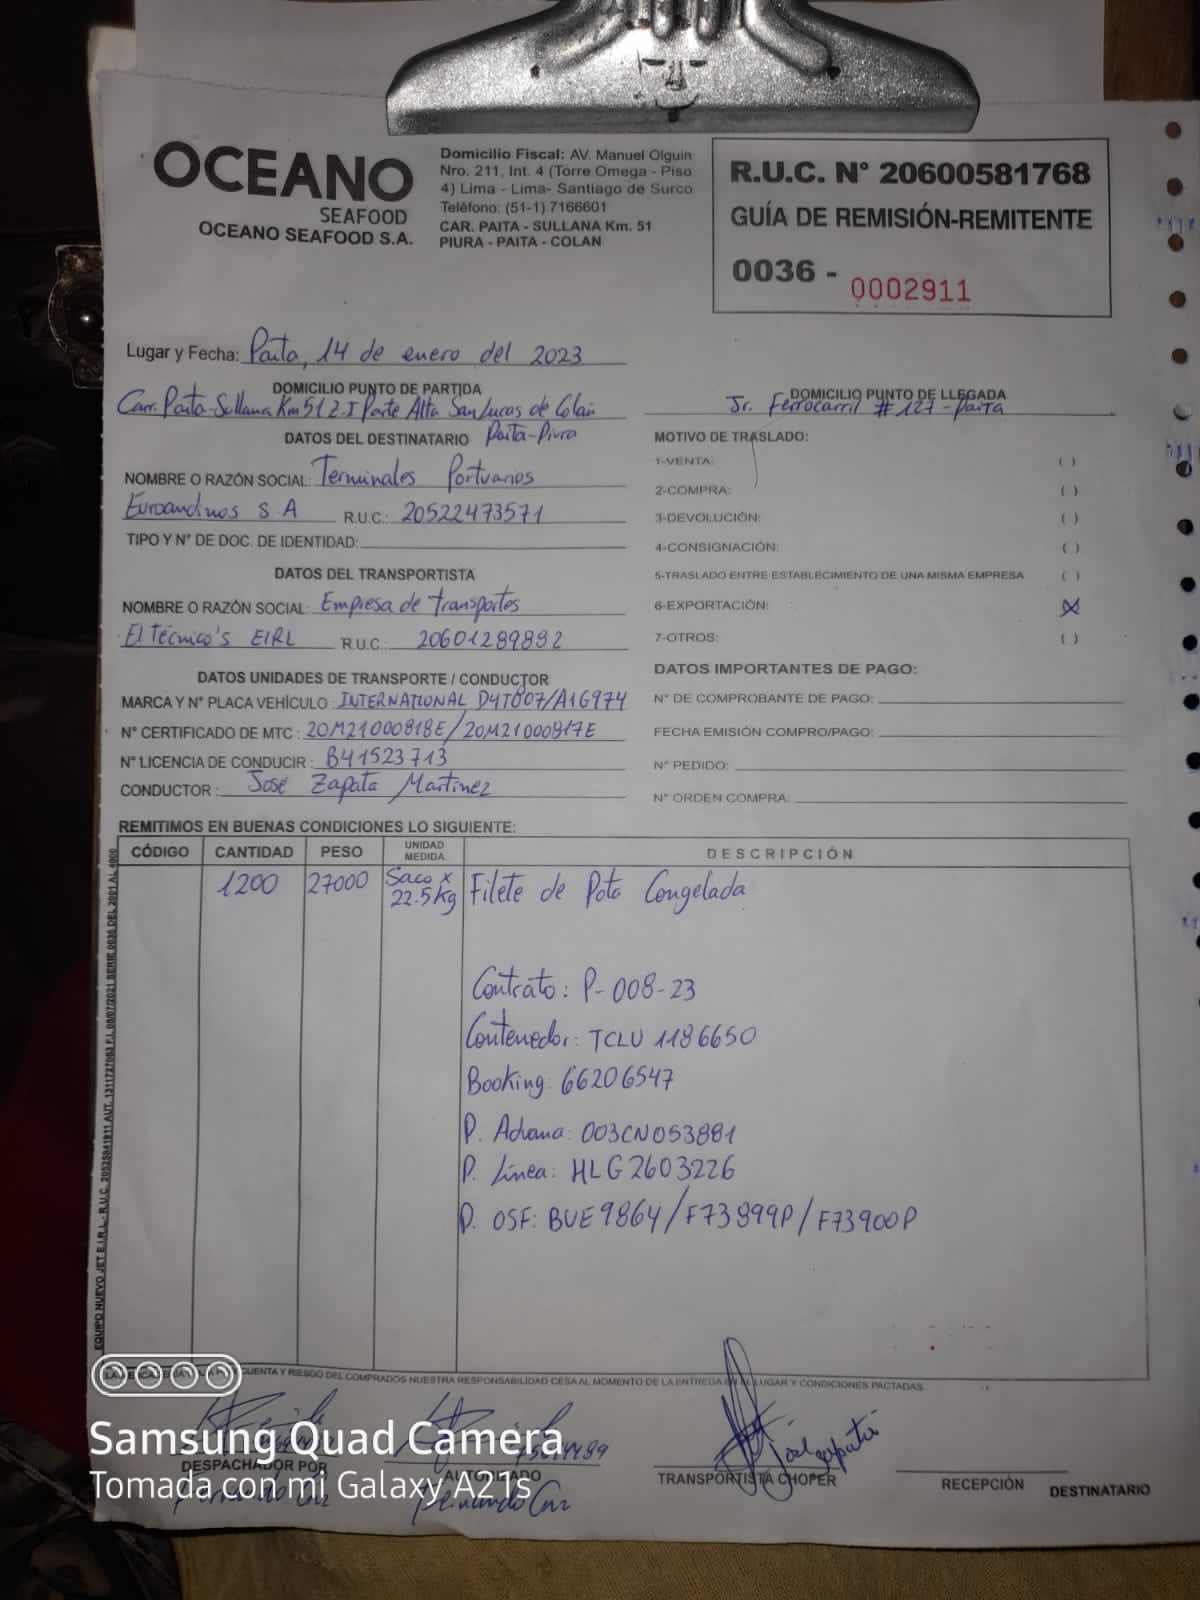 OCEANO
SEAFOOD
OCEANO SEAFOOD S.A.
Domicilio Fiscal: AV. Manuel Olguin
Nro. 211, Int. 4 (Torre Omega - Piso
4) Lima - Lima- Santiago de Surco
Teléfono: (51-1) 7166601
CAR. PAITA - SULLANA Km. 51
PIURA - PAITA - COLAN
R.U.C. N° 20600581768
GUÍA DE REMISIÓN-REMITENTE
0036 - 0002911
Lugar y Fecha: Paita, 14 de enero del 2023
DOMICILIO PUNTO DE PARTIDA
Carr. Paita-Sullana Km 51 2.I Parte Alta San Lucas de Colan
Paita-Piura
DOMICILIO PUNTO DE LLEGADA
Jr. Ferrocarril # 127 - Paita
DATOS DEL DESTINATARIO
NOMBRE O RAZÓN SOCIAL: Terminales Portuarios
Euroandinos S A R.U.C.: 20522473571
TIPO Y N° DE DOC. DE IDENTIDAD:
DATOS DEL TRANSPORTISTA
NOMBRE O RAZÓN SOCIAL: Empresa de transportes
El Técnico's EIRL R.U.C.: 20601289882
DATOS UNIDADES DE TRANSPORTE / CONDUCTOR
MARCA Y N° PLACA VEHÍCULO: INTERNATIONAL D4T807/A1G974
N° CERTIFICADO DE MTC: 20M21000818E/20M21000817E
N° LICENCIA DE CONDUCIR: B41523713
CONDUCTOR: José Zapata Martinez
MOTIVO DE TRASLADO:
1-VENTA: ( )
2-COMPRA: ( )
3-DEVOLUCIÓN: ( )
4-CONSIGNACIÓN: ( )
5-TRASLADO ENTRE ESTABLECIMIENTO DE UNA MISMA EMPRESA ( )
6-EXPORTACIÓN: (X)
7-OTROS: ( )
DATOS IMPORTANTES DE PAGO:
N° DE COMPROBANTE DE PAGO:
FECHA EMISIÓN COMPRO/PAGO:
N° PEDIDO:
N° ORDEN COMPRA:
REMITIMOS EN BUENAS CONDICIONES LO SIGUIENTE:
CÓDIGO CANTIDAD PESO UNIDAD MEDIDA. DESCRIPCIÓN
1200 27000 Saco x 22.5kg Filete de Pota Congelada
Contrato: P-008-23
Contenedor: TCLU 1186650
Booking: 66206547
P. Aduana: 003CN053881
P. Línea: HLG2603226
P. OSF: BUE9864/F73899P/F73900P
EQUIPO NUEVO JET E.I.R.L. - R.U.C. AUT. 1311727083 F.I. 08/07/2021 SERIE 0036 DEL 2001 AL 4000
CUENTA Y RIESGO DEL COMPRADOS NUESTRA RESPONSABILIDAD CESA AL MOMENTO DE LA ENTREGA EN EL LUGAR Y CONDICIONES PACTADAS.
DESPACHADOR POR
AUTORIZADO
Fernando Cruz
TRANSPORTISTA CHOFER
José Zapata
RECEPCIÓN DESTINATARIO
Samsung Quad Camera
Tomada con mi Galaxy A21s